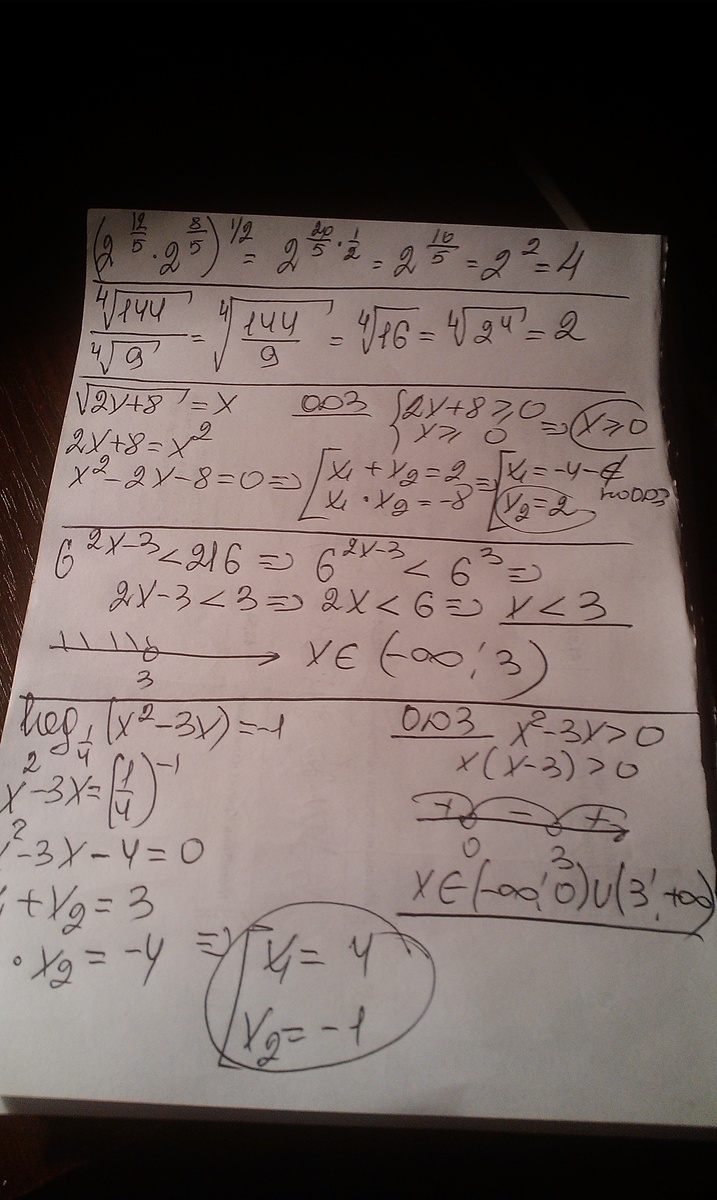 (2^{12/5} · 2^{8/5})^{1/2} = 2^{20/5 · 1/2} = 2^{10/5} = 2^2 = 4
∜144 / ∜9 = ∜(144/9) = ∜16 = ∜(2^4) = 2
√(2x+8) = x ОДЗ { 2x+8 ≥ 0
x ≥ 0 => x ≥ 0
2x+8 = x^2
x^2 - 2x - 8 = 0 => [ x₁ + x₂ = 2
x₁ · x₂ = -8 => [ x₁ = -4 - ∉ по ОДЗ
x₂ = 2
6^{2x-3} < 216 => 6^{2x-3} < 6^3 =>
2x-3 < 3 => 2x < 6 => x < 3
3
x ∈ (-∞; 3)
log_{1/4} (x^2 - 3x) = -1
x^2 - 3x = (1/4)^{-1}
x^2 - 3x - 4 = 0
+ x₂ = 3
· x₂ = -4 => [ x₁ = 4
x₂ = -1
ОДЗ x^2 - 3x > 0
x(x-3) > 0
+ - +
0 3
x ∈ (-∞; 0) ∪ (3; +∞)